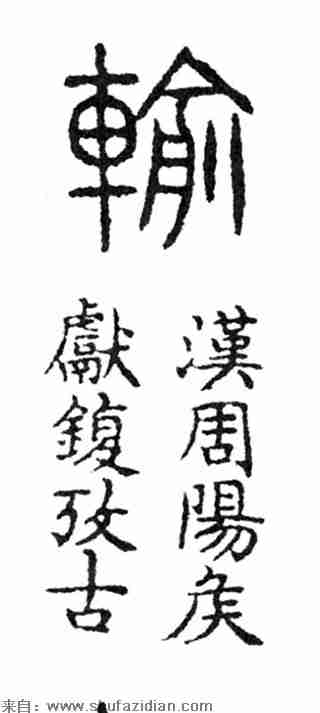 輸
漢周陽矦
獻鍑攷古
来自：www.shufazidian.com